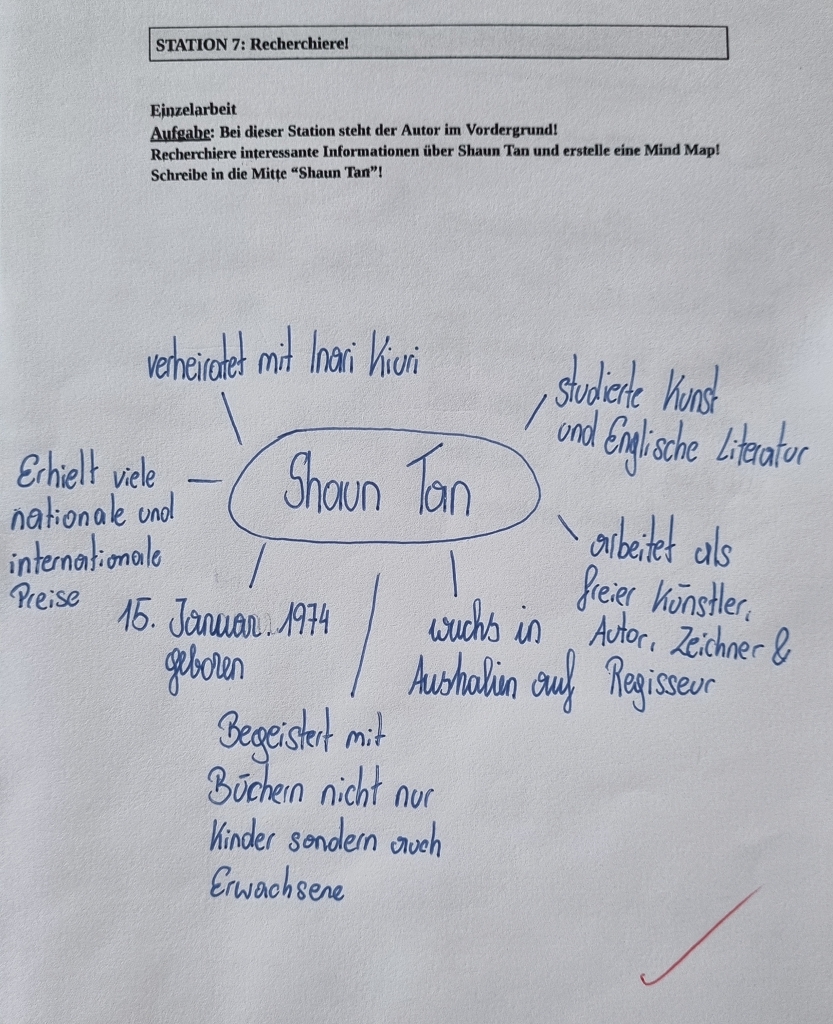 STATION 7: Recherchiere!
Einzelarbeit
Aufgabe: Bei dieser Station steht der Autor im Vordergrund!
Recherchiere interessante Informationen über Shaun Tan und erstelle eine Mind Map!
Schreibe in die Mitte “Shaun Tan”!
verheiratet mit Inari Kiuri
studierte Kunst
und Englische Literatur
Shaun Tan
Erhielt viele
nationale und
internationale
Preise
arbeitet als
freier Künstler,
Autor, Zeichner &
Regisseur
15. Januar. 1974
geboren
wuchs in
Australien auf
Begeistert mit
Büchern nicht nur
Kinder sondern auch
Erwachsene